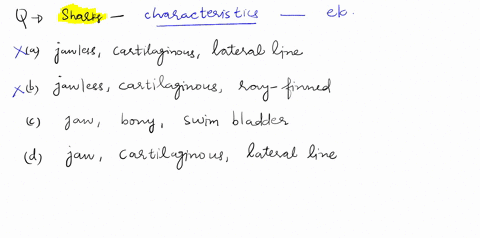 Q → Sharks — characteristics —
x(a) jawless, cartilaginous, lateral line
x(b) jawless, cartilaginous, ray-finned
(c) jaw, bony, swim bladder
(d) jaw, cartilaginous, lateral line